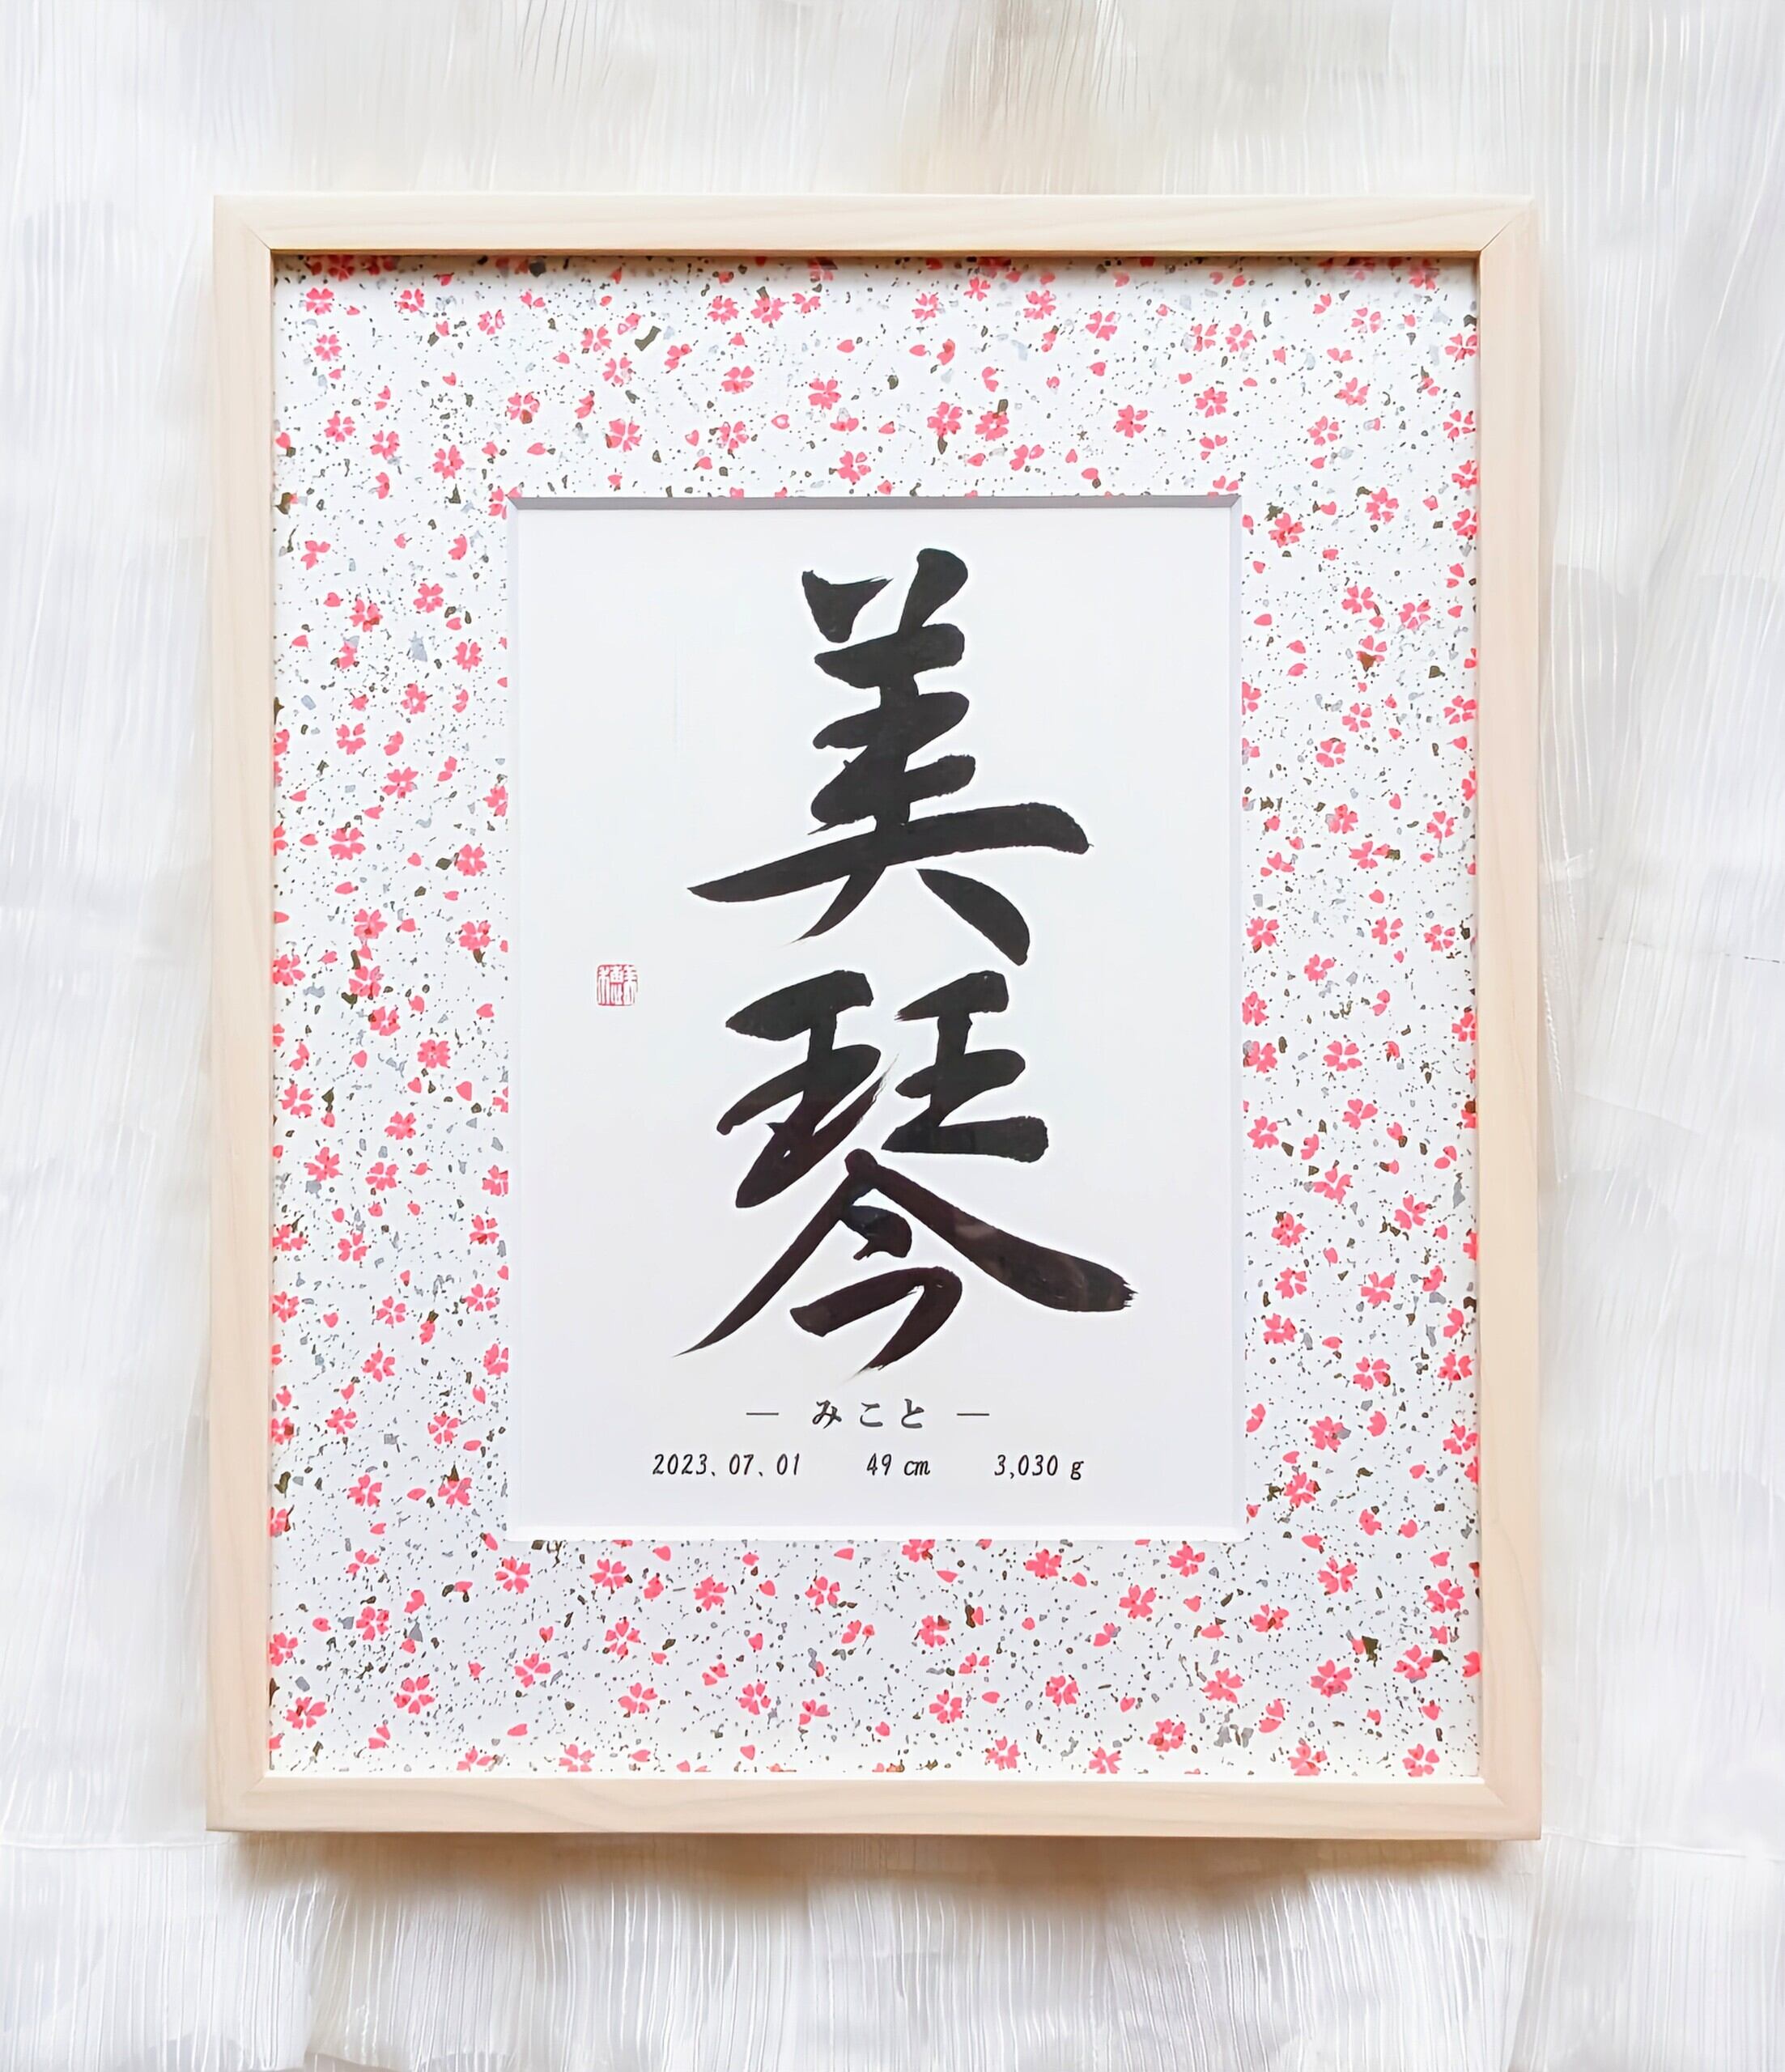 美琴
— みこと —
2023、07、01 49 cm 3,030 g